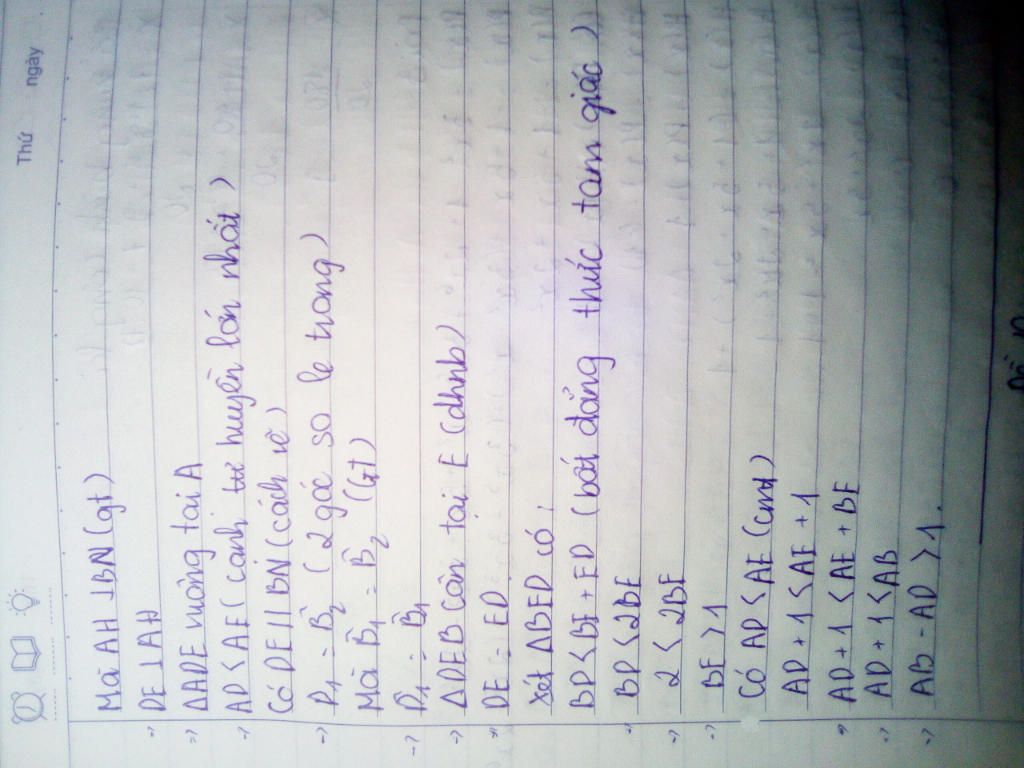 Thứ ngày
Mà AH ⊥ BN (gt)
=> DE ⊥ AH
=> ΔADE vuông tại A
=> AD < AE (cạnh tư huyền lớn nhất)
Có DE // BN (cách vẽ)
=> D₁ = B̂₂ (2 góc so le trong)
Mà B̂₁ = B̂₂ (Gt)
=> D₁ = B̂₁
=> ΔDEB cân tại E (dhnb)
=> DE = ED
Xét ΔBED có:
BD < BE + ED (bất đẳng thức tam giác)
=> BD < 2BE
=> 2 < 2BE
=> BE > 1
Có AD < AE (cmt)
AD + 1 < AE + 1
=> AD + 1 < AE + BE
=> AD + 1 < AB
=> AB - AD > 1.